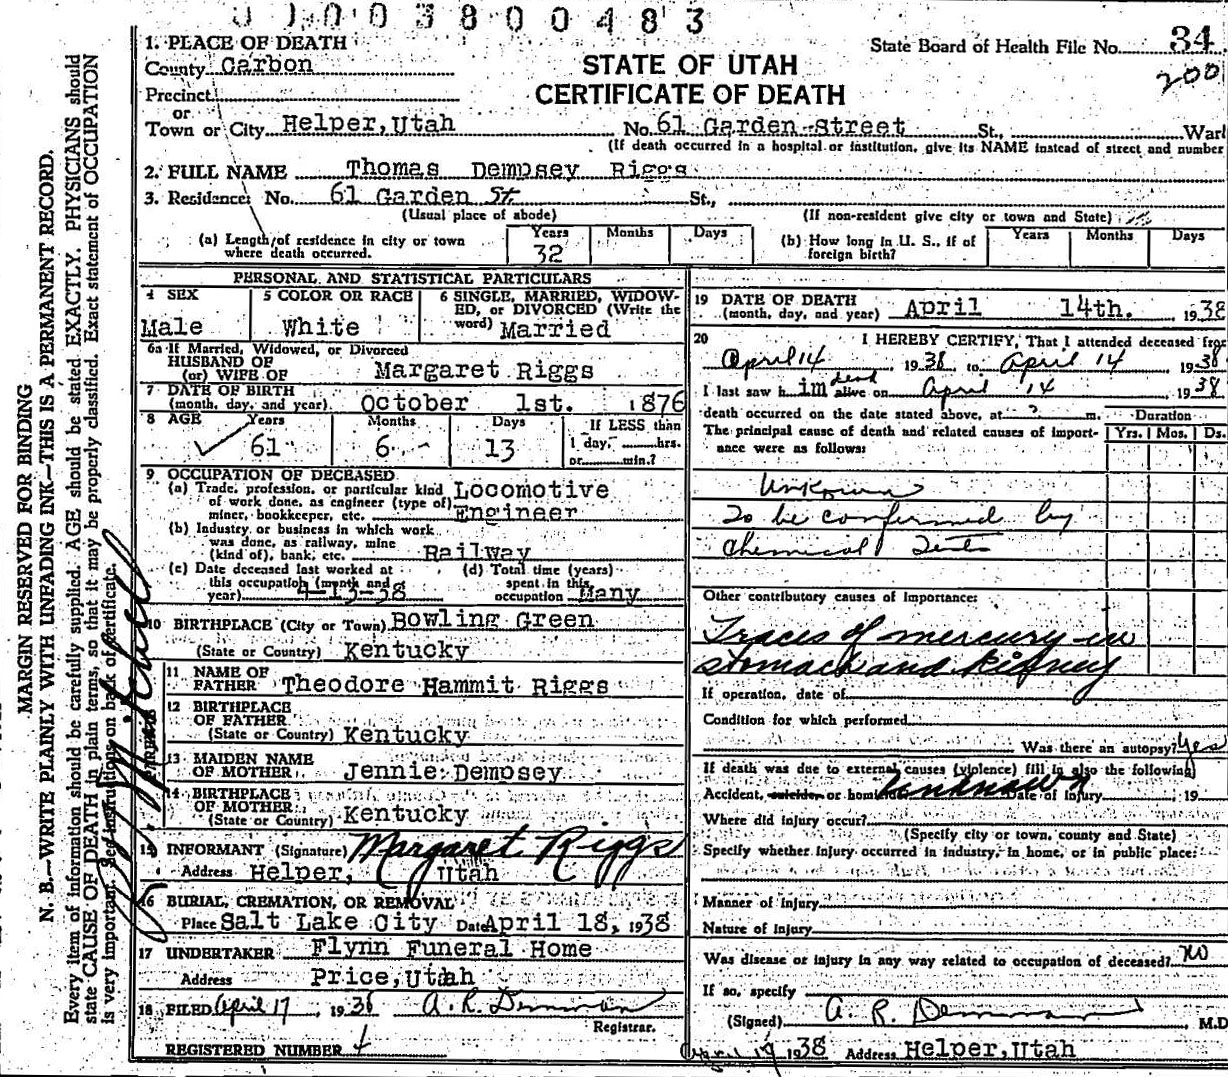 0 0 0 3 8 0 0 4 8 3
1. PLACE OF DEATH
County Carbon
Precinct
or
Town or City Helper, Utah
STATE OF UTAH
CERTIFICATE OF DEATH
State Board of Health File No. 34
200
No. 61 Garden Street St., Ward
(If death occurred in a hospital or institution, give its NAME instead of street and number
2. FULL NAME Thomas Dempsey Riggs
3. Residence: No. 61 Garden St. St.,
(Usual place of abode) (If non-resident give city or town and State)
(a) Length of residence in city or town where death occurred. Years 32 Months Days
(b) How long in U. S., if of foreign birth? Years Months Days
PERSONAL AND STATISTICAL PARTICULARS
4 SEX Male
5 COLOR OR RACE White
6 SINGLE, MARRIED, WIDOWED, or DIVORCED (Write the word) Married
6a If Married, Widowed, or Divorced
HUSBAND OF
(or) WIFE OF Margaret Riggs
7 DATE OF BIRTH
(month, day, and year) October 1st. 1876
8 AGE Years 61 Months 6 Days 13 If LESS than 1 day, hrs. or min.?
9 OCCUPATION OF DECEASED
(a) Trade, profession, or particular kind of work done, as engineer (type of) miner, bookkeeper, etc. Locomotive Engineer
(b) Industry or business in which work was done, as railway, mine (kind of), bank, etc. Railway
(c) Date deceased last worked at this occupation (month and year) 4-13-38
(d) Total time (years) spent in this occupation Many
10 BIRTHPLACE (City or Town) Bowling Green
(State or Country) Kentucky
PARENTS
11 NAME OF FATHER Theodore Hammit Riggs
12 BIRTHPLACE OF FATHER
(State or Country) Kentucky
13 MAIDEN NAME OF MOTHER Jennie Dempsey
14 BIRTHPLACE OF MOTHER
(State or Country) Kentucky
15 INFORMANT (Signature) Margaret Riggs
Address Helper, Utah
16 BURIAL, CREMATION, OR REMOVAL
Place Salt Lake City Date April 18, 1938
17 UNDERTAKER Flynn Funeral Home
Address Price, Utah
18 FILED April 17 1938 A. R. Demman
Registrar.
REGISTERED NUMBER 4
19 DATE OF DEATH
(month, day, and year) April 14th. , 1938
20 I HEREBY CERTIFY, That I attended deceased from
April 14 1938 to April 14 1938
I last saw him dead alive on April 14 1938
death occurred on the date stated above, at ? m.
The principal cause of death and related causes of importance were as follows: Duration Yrs. Mos. Ds.
Unknown
To be confirmed by
Chemical Tests
Other contributory causes of importance:
Traces of mercury in
stomach and kidney
If operation, date of
Condition for which performed
Was there an autopsy? Yes
If death was due to external causes (violence) fill in also the following
Accident, suicide, or homicide Unknown Date of injury , 19
Where did injury occur?
(Specify city or town, county and State)
Specify whether injury occurred in industry, in home, or in public place:
Manner of injury
Nature of injury
Was disease or injury in any way related to occupation of deceased? No
If so, specify
(Signed) A. R. Demman M.D
April 19 1938 Address Helper, Utah
MARGIN RESERVED FOR BINDING
N. B.—WRITE PLAINLY WITH UNFADING INK—THIS IS A PERMANENT RECORD.
Every item of information should be carefully supplied. AGE should be stated EXACTLY. PHYSICIANS should
state CAUSE OF DEATH in plain terms, so that it may be properly classified. Exact statement of OCCUPATION
is very important. See instructions on back of certificate.